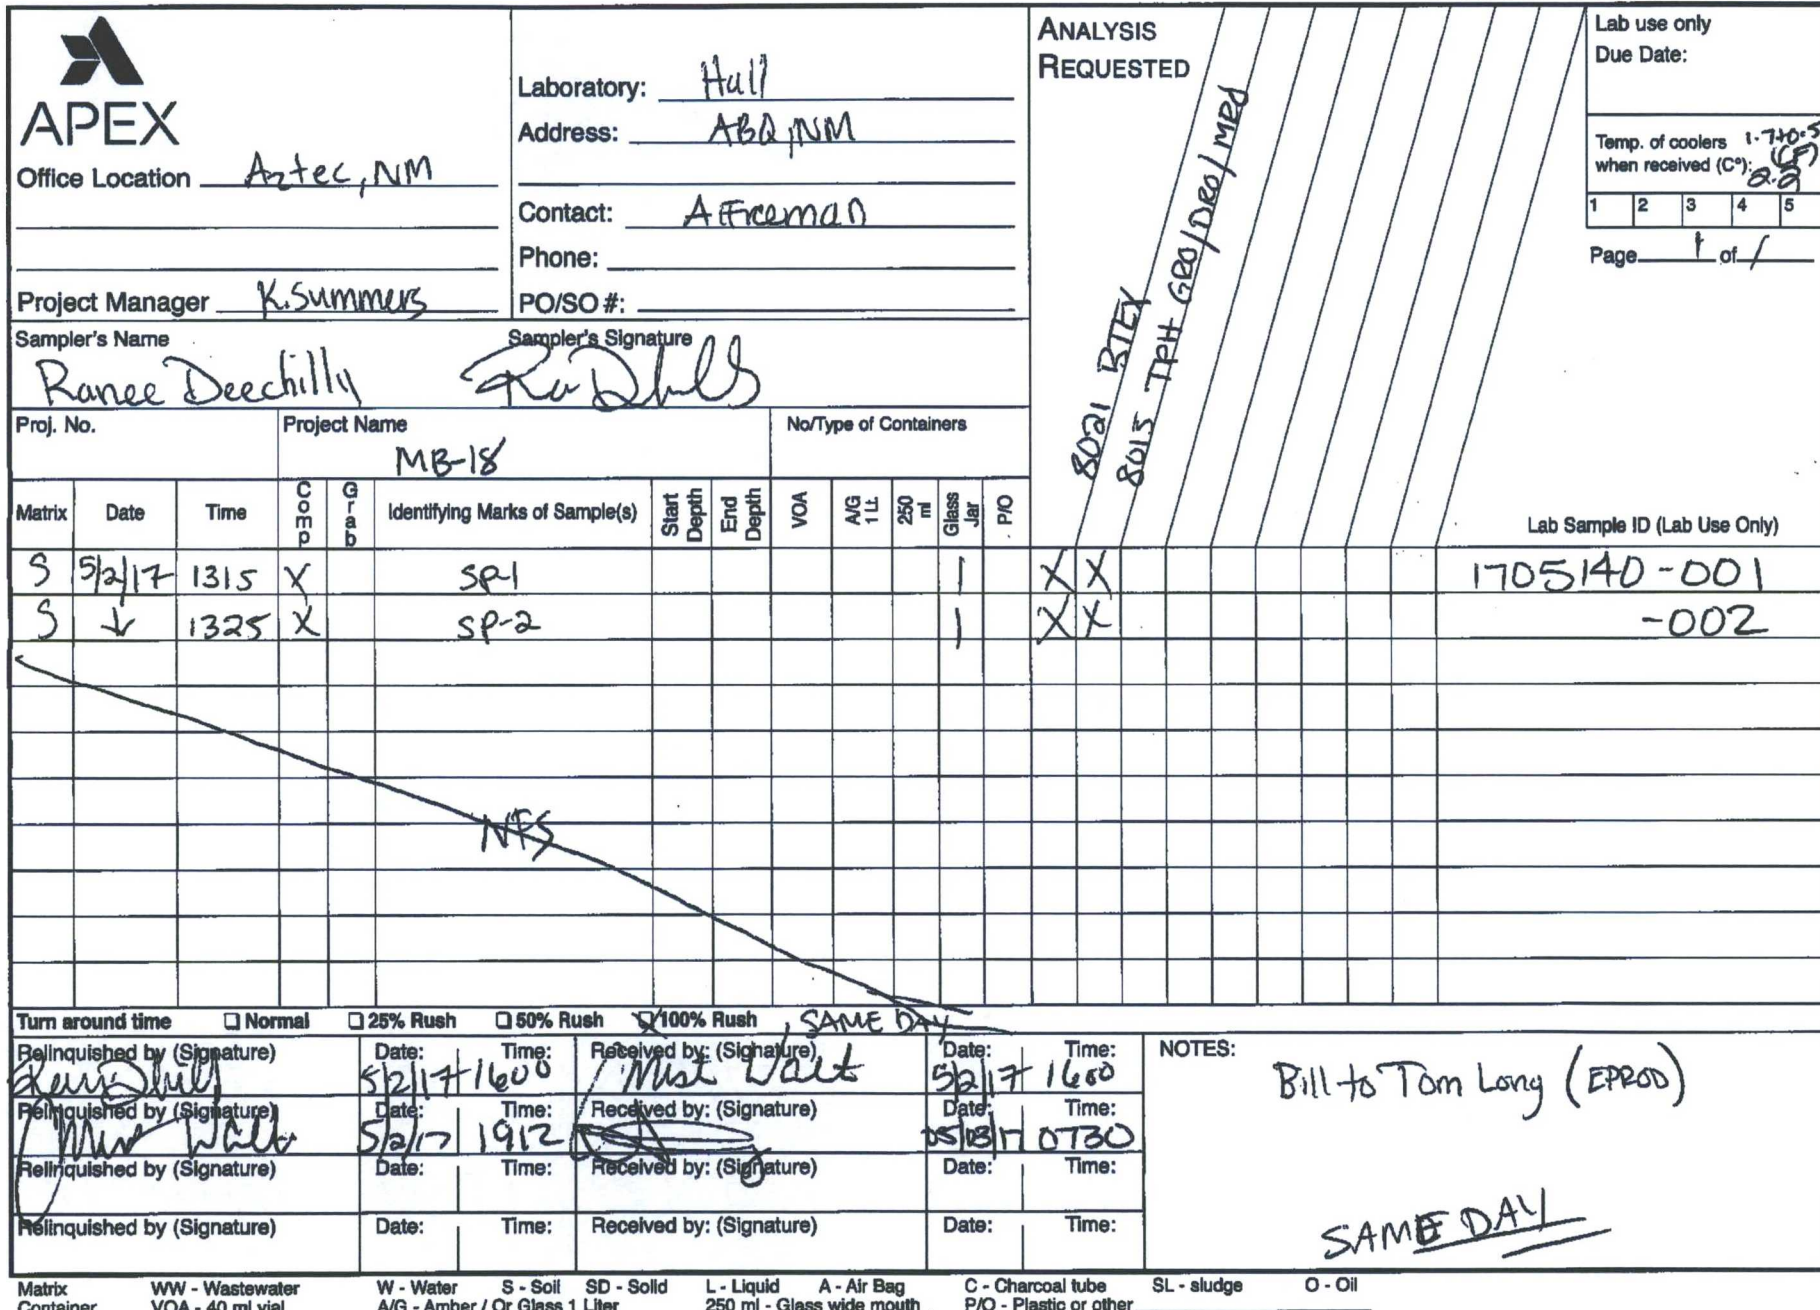 APEX
Office Location Aztec, NM
Project Manager K. Summers
Laboratory: Hall
Address: ABQ, NM
Contact: A Freeman
Phone:
PO/SO #:
ANALYSIS
REQUESTED
8021 BTEX
8015 TPH GRO/DRO/MRO
Lab use only
Due Date:
Temp. of coolers 1.7+0.5
when received (C°): (CF)
2.2
1 2 3 4 5
Page 1 of 1
Sampler's Name
Ranee Deechilly
Sampler's Signature
Proj. No.
Project Name
MB-18
No/Type of Containers
Matrix Date Time Comp Grab Identifying Marks of Sample(s) Start Depth End Depth VOA A/G 1 Lt. 250 ml Glass Jar P/O Lab Sample ID (Lab Use Only)
S 5/2/17 1315 X SP-1 1 X X 1705140-001
S ↓ 1325 X SP-2 1 X X -002
NFS
Turn around time ☐ Normal ☐ 25% Rush ☐ 50% Rush ☒ 100% Rush, SAME DAY
Relinquished by (Signature) Date: Time: Received by: (Signature) Date: Time: NOTES:
5/2/17 1600 5/2/17 1600
Bill to Tom Long (EPROD)
Relinquished by (Signature) Date: Time: Received by: (Signature) Date: Time:
5/2/17 1912 05/03/17 0730
Relinquished by (Signature) Date: Time: Received by: (Signature) Date: Time:
Relinquished by (Signature) Date: Time: Received by: (Signature) Date: Time:
SAME DAY
Matrix WW - Wastewater W - Water S - Soil SD - Solid L - Liquid A - Air Bag C - Charcoal tube SL - sludge O - Oil
Container VOA - 40 ml vial A/G - Amber / Or Glass 1 Liter 250 ml - Glass wide mouth P/O - Plastic or other